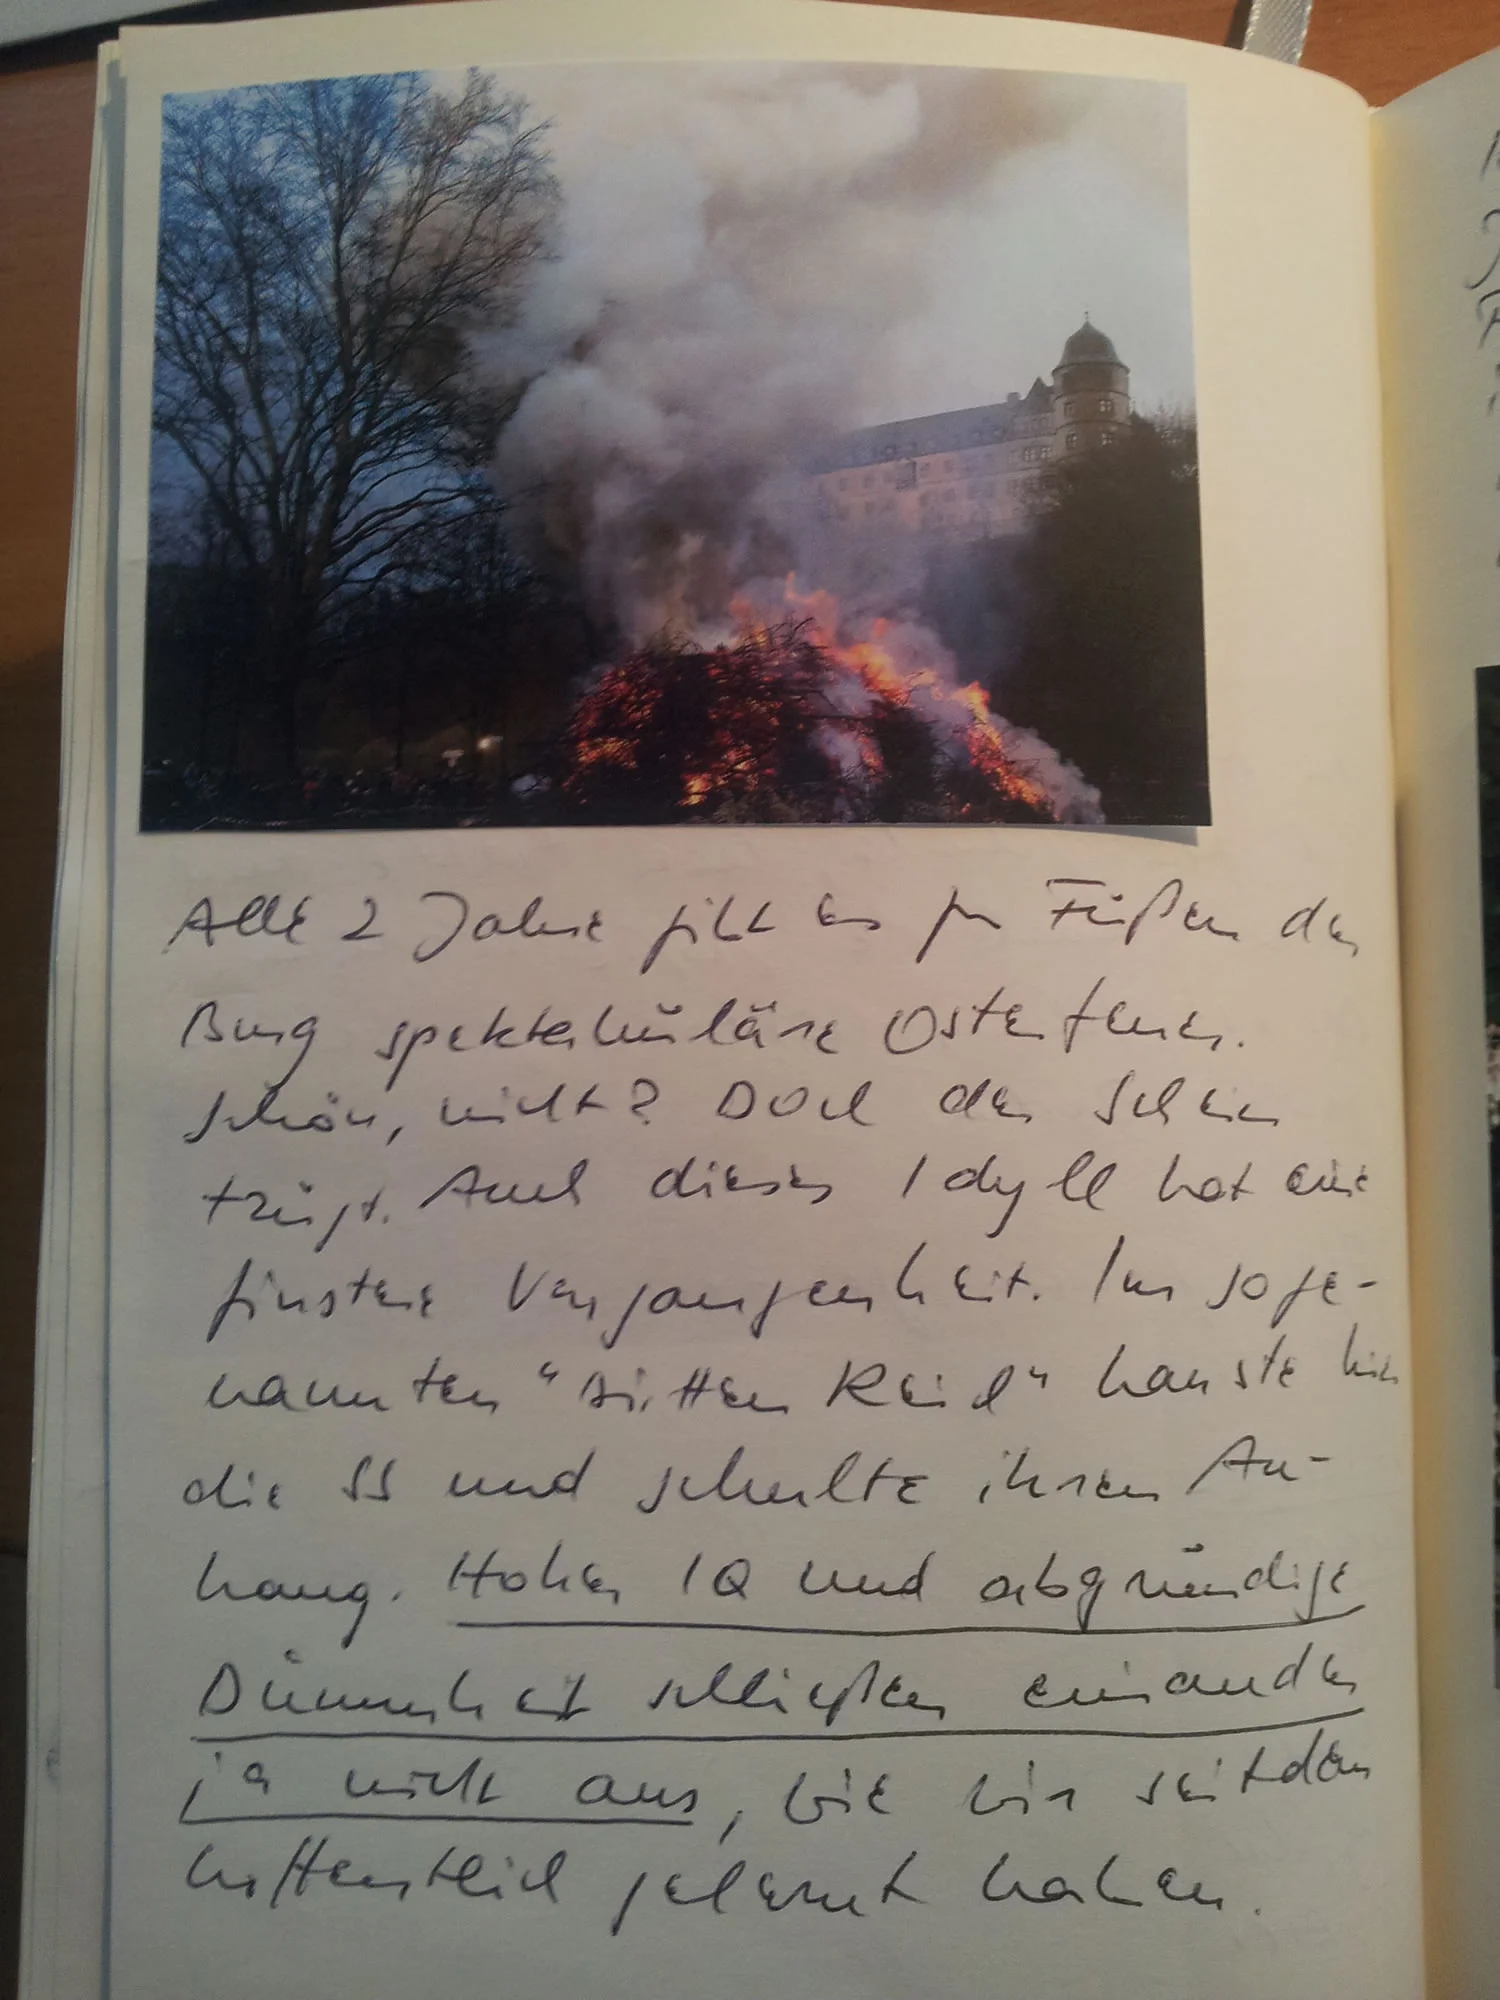 Alle 2 Jahre gibt es zu Füßen der
Burg spektakuläre Osterfeuer.
Schön, nicht? Doch der Schein
trügt. Auch dieses Idyll hat eine
finstere Vergangenheit. Im soge-
nannten "Dritten Reich" hauste hier
die SS und schulte ihren An-
hang. Hoher IQ und abgründige
Dummheit schließen einander
ja nicht aus, wie wir seitdem
hoffentlich gelernt haben.